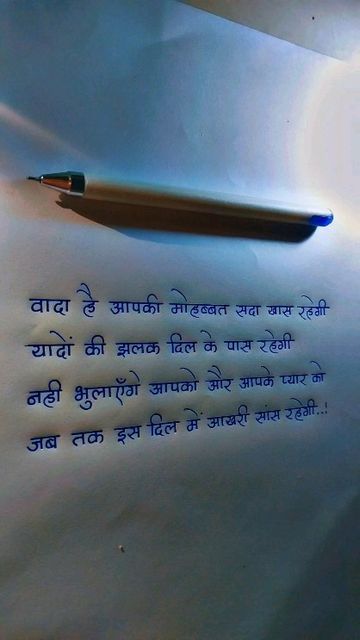 वादा है आपकी मोहब्बत सदा खास रहेगी
यादों की झलक दिल के पास रहेगी
नही भुलाएँगे आपको और आपके प्यार को
जब तक इस दिल में आखरी सांस रहेगी..!